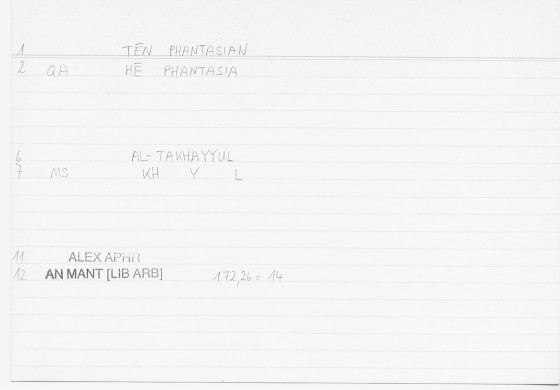 1 TĒN PHANTASIAN
2 QA HĒ PHANTASIA
6 AL-TAKHAYYUL
7 MS KH Y L
11 ALEX APHR
12 AN MANT [LIB ARB] 172,26 = 14